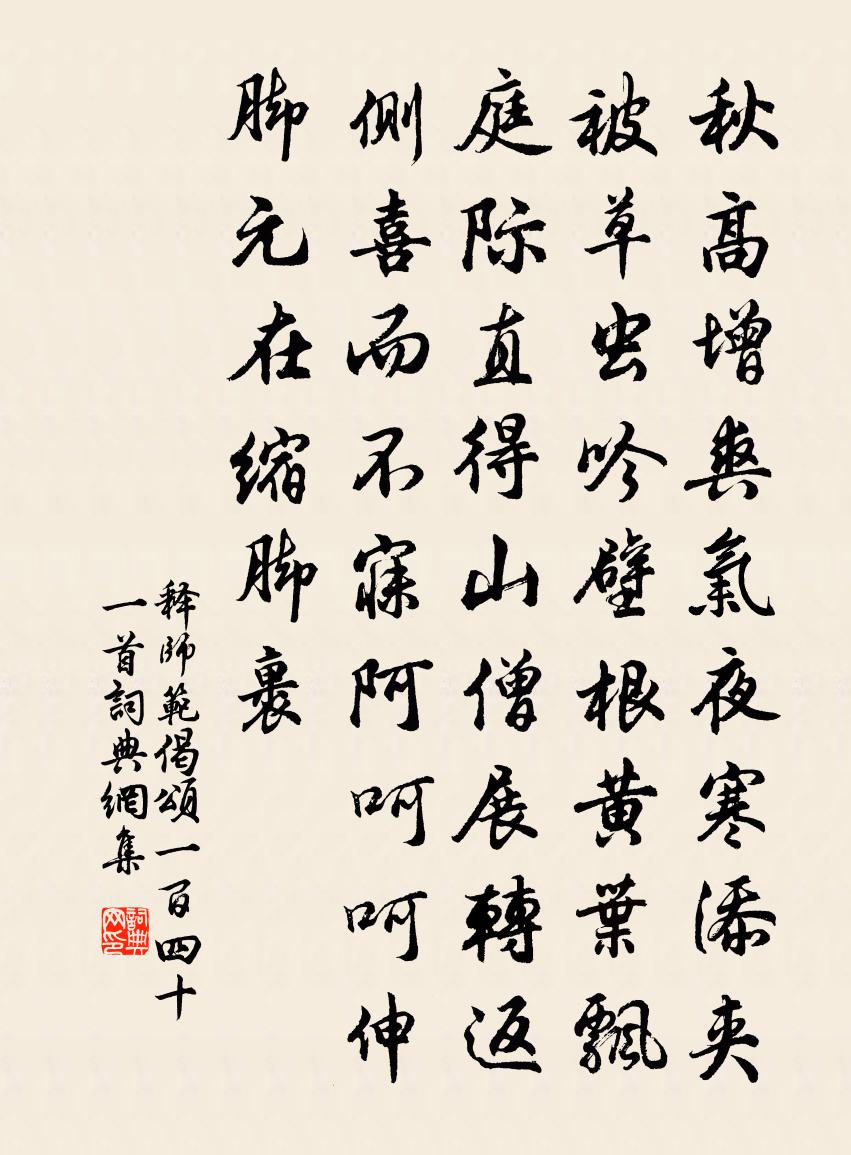 秋高增爽氣夜寒添夹
被草虫吟壁根黄葉飄
庭际直得山僧展轉返
側喜而不寐阿呵呵伸
脚元在缩脚裹
释師範偈頌一百四十
一首詞典網集
詞典网印